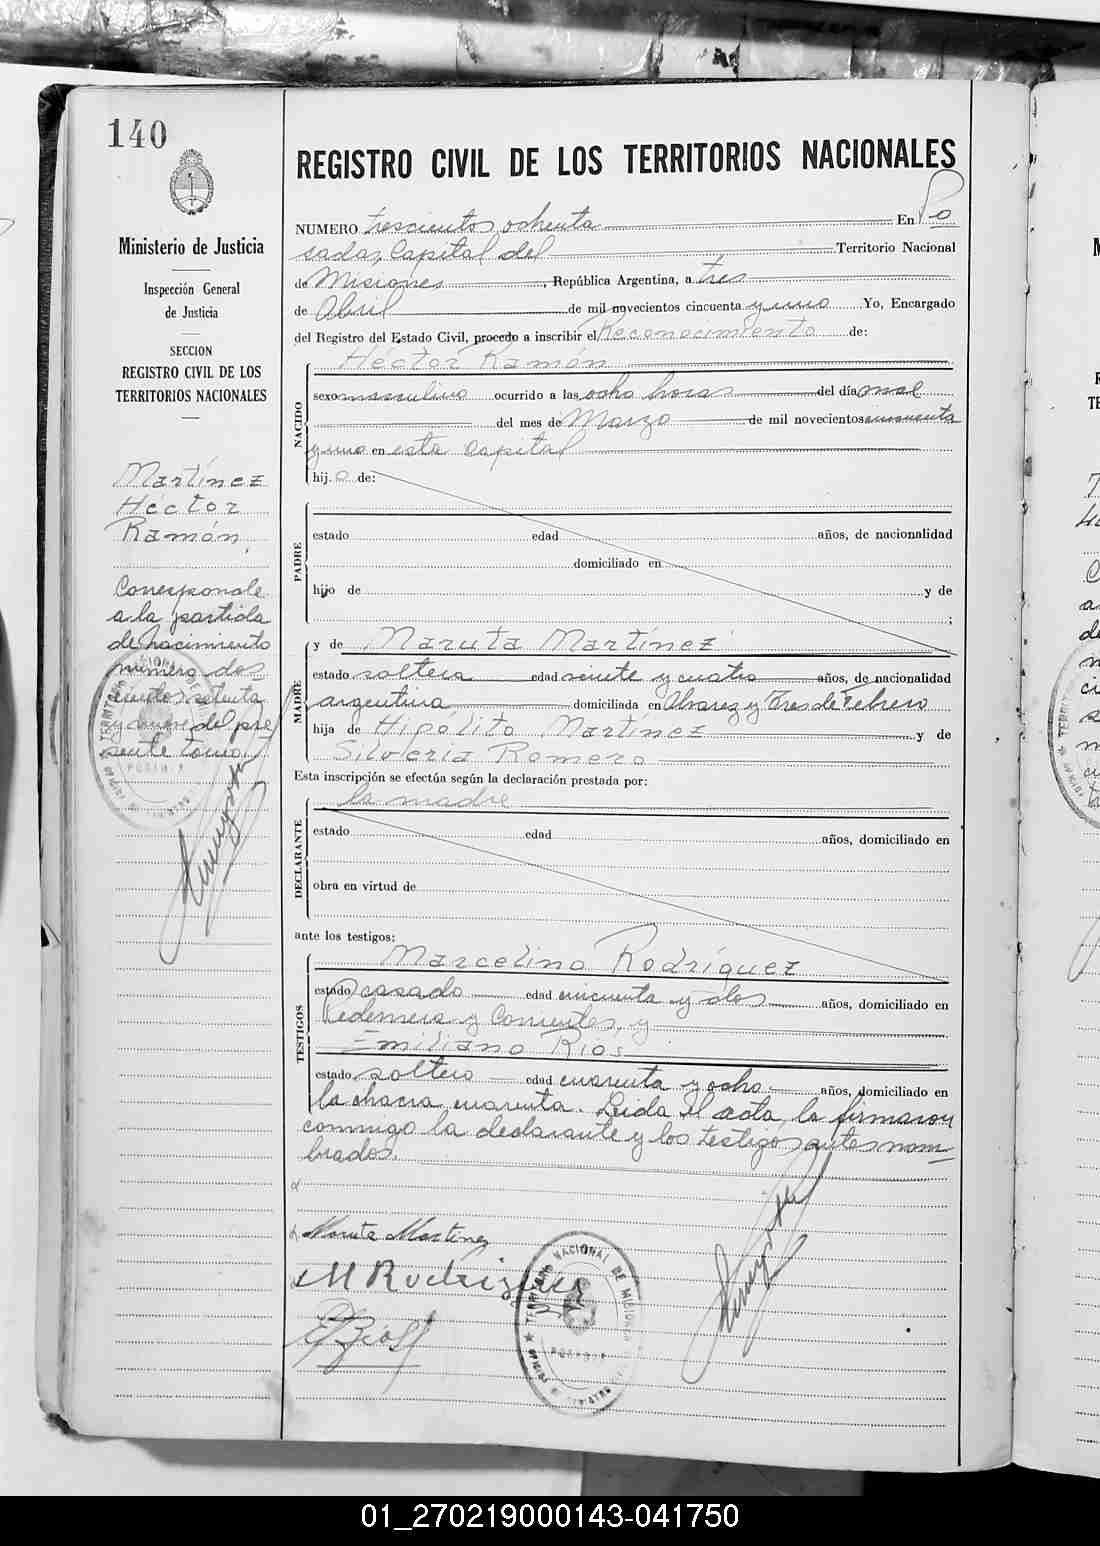 140
Ministerio de Justicia
Inspección General
de Justicia
SECCION
REGISTRO CIVIL DE LOS
TERRITORIOS NACIONALES
Martínez
Héctor
Ramón.
Corresponde
a la partida
de nacimiento
número dos
cientos setenta
y nueve del pre
sente tomo.
REGISTRO CIVIL DE LOS TERRITORIOS NACIONALES
NUMERO trescientos ochenta En Po
sadas, Capital del Territorio Nacional
de Misiones, República Argentina, a tres
de Abril de mil novecientos cincuenta y uno Yo, Encargado
del Registro del Estado Civil, procedo a inscribir el Reconocimiento de:
NACIDO
Héctor Ramón
sexo masculino ocurrido a las ocho horas del día
del mes de Marzo de mil novecientos cincuenta
y uno en esta capital
hij.o de:
PADRE
estado edad años, de nacionalidad
domiciliado en
hijo de y de
;
MADRE
y de Maruta Martínez
estado soltera edad veinte y cuatro años, de nacionalidad
argentina domiciliada en Alvarez y Tres de Febrero
hija de Hipólito Martínez y de
Silveria Romero
Esta inscripción se efectúa según la declaración prestada por:
DECLARANTE
la madre
estado edad años, domiciliado en
obra en virtud de
ante los testigos:
TESTIGOS
Marcelino Rodríguez
estado casado edad cincuenta y dos años, domiciliado en
Pedernera y Corrientes, y
Emiliano Ríos
estado soltero edad cuarenta y ocho años, domiciliado en
la chacra cuarenta. Leida el acta, la firmaron
conmigo la declarante y los testigos antes nom
brados.
Maruta Martinez
M Rodriguez
E Rios
TERRITORIO NACIONAL DE MISIONES
POSADAS
01_270219000143-041750